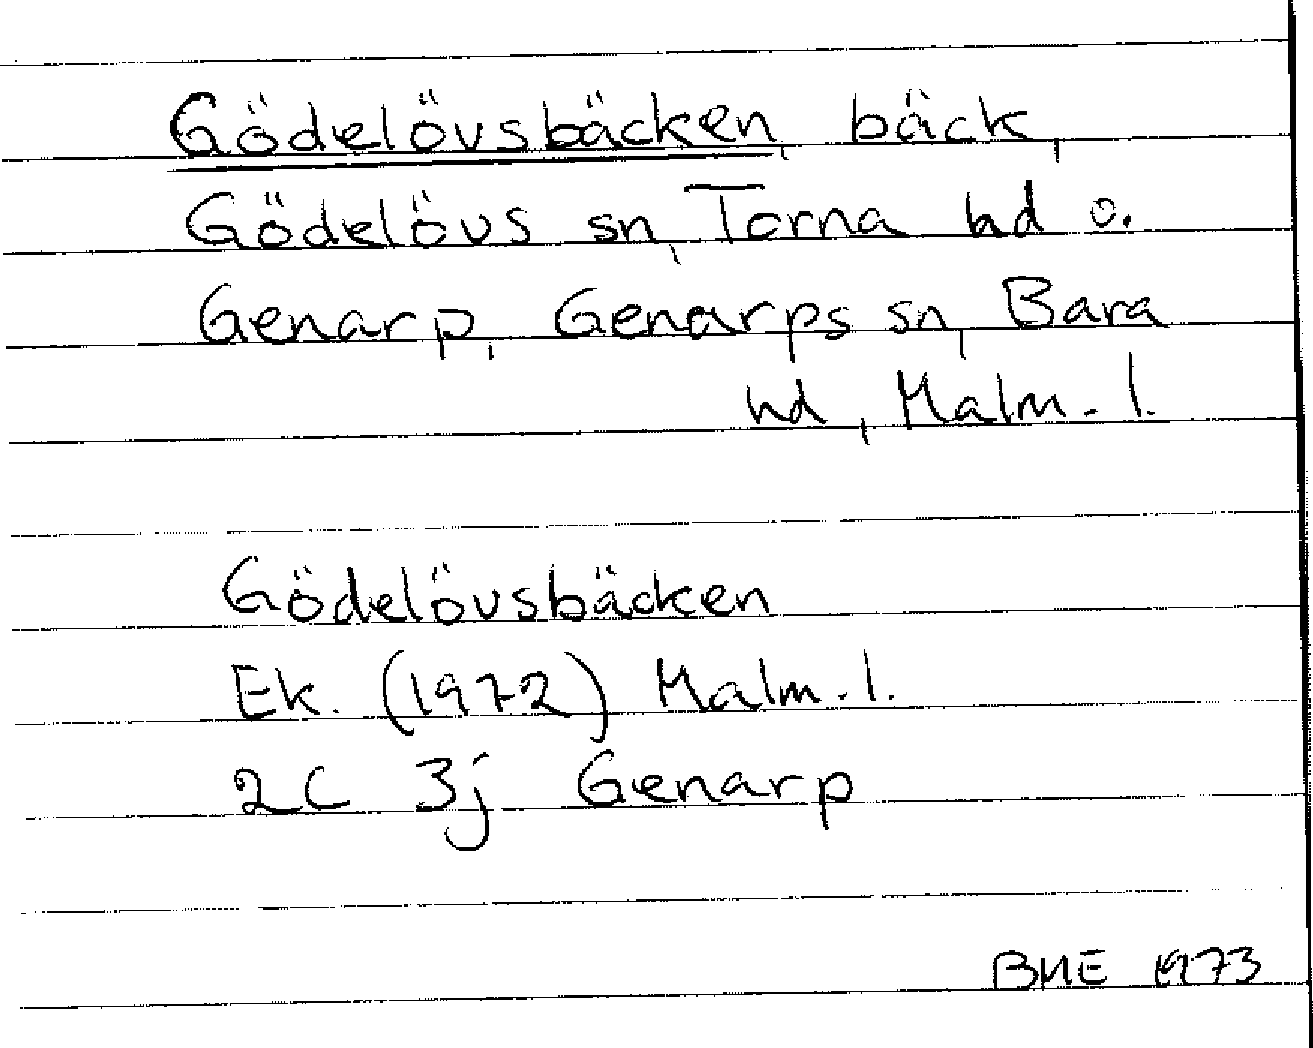 Gödelövsbäcken, bäck,
Gödelövs sn, Torna hd o.
Genarp, Genarps sn, Bara
hd, Malm. l.
Gödelövsbäcken
Ek. (1972) Malm. l.
2C 3j Genarp
BME 1973